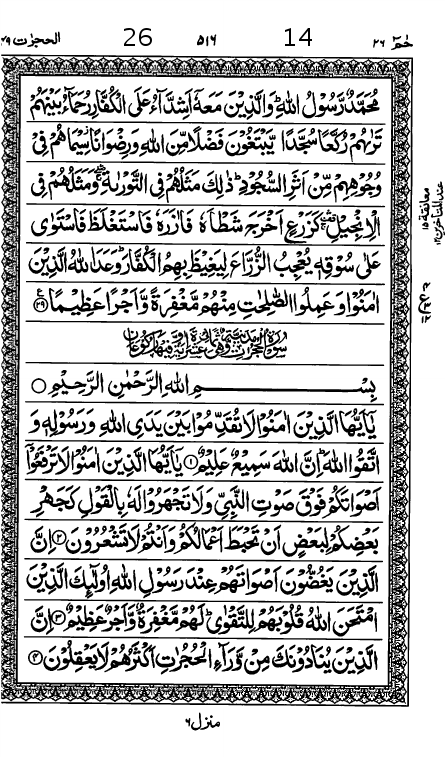 الحجرٰت ٤٩ 26 ٥١٦ 14 حٰمٓ ٢٦
مُحَمَّدٌ رَّسُوْلُ اللّٰهِ ؕ وَالَّذِيْنَ مَعَهٗۤ اَشِدَّآءُ عَلَى الْكُفَّارِ رُحَمَآءُ بَيْنَهُمْ
تَرٰىهُمْ رُكَّعًا سُجَّدًا يَّبْتَغُوْنَ فَضْلًا مِّنَ اللّٰهِ وَرِضْوَانًا ؗ سِيْمَاهُمْ فِيْ
وُجُوْهِهِمْ مِّنْ اَثَرِ السُّجُوْدِ ؕ ذٰلِكَ مَثَلُهُمْ فِي التَّوْرٰىةِ ۛۖۚ وَمَثَلُهُمْ فِي
الْاِنْجِيْلِ ۛ۫ۚ كَزَرْعٍ اَخْرَجَ شَطْـَٔهٗ فَاٰزَرَهٗ فَاسْتَغْلَظَ فَاسْتَوٰى
عَلٰى سُوْقِهٖ يُعْجِبُ الزُّرَّاعَ لِيَغِيْظَ بِهِمُ الْكُفَّارَ ؕ وَعَدَ اللّٰهُ الَّذِيْنَ
اٰمَنُوْا وَعَمِلُوا الصّٰلِحٰتِ مِنْهُمْ مَّغْفِرَةً وَّاَجْرًا عَظِيْمًا ﴿٢٩﴾ ع
بِسْمِ اللّٰهِ الرَّحْمٰنِ الرَّحِيْمِ
يٰۤاَيُّهَا الَّذِيْنَ اٰمَنُوْا لَا تُقَدِّمُوْا بَيْنَ يَدَيِ اللّٰهِ وَرَسُوْلِهٖ وَ
اتَّقُوا اللّٰهَ ؕ اِنَّ اللّٰهَ سَمِيْعٌ عَلِيْمٌ ﴿١﴾ يٰۤاَيُّهَا الَّذِيْنَ اٰمَنُوْا لَا تَرْفَعُوْۤا
اَصْوَاتَكُمْ فَوْقَ صَوْتِ النَّبِيِّ وَلَا تَجْهَرُوْا لَهٗ بِالْقَوْلِ كَجَهْرِ
بَعْضِكُمْ لِبَعْضٍ اَنْ تَحْبَطَ اَعْمَالُكُمْ وَاَنْتُمْ لَا تَشْعُرُوْنَ ﴿٢﴾ اِنَّ
الَّذِيْنَ يَغُضُّوْنَ اَصْوَاتَهُمْ عِنْدَ رَسُوْلِ اللّٰهِ اُولٰٓئِكَ الَّذِيْنَ
امْتَحَنَ اللّٰهُ قُلُوْبَهُمْ لِلتَّقْوٰى ؕ لَهُمْ مَّغْفِرَةٌ وَّاَجْرٌ عَظِيْمٌ ﴿٣﴾ اِنَّ
الَّذِيْنَ يُنَادُوْنَكَ مِنْ وَّرَآءِ الْحُجُرٰتِ اَكْثَرُهُمْ لَا يَعْقِلُوْنَ ﴿٤﴾
منزل ٦
معانقة ١٥
عند المتاخرين ١٢